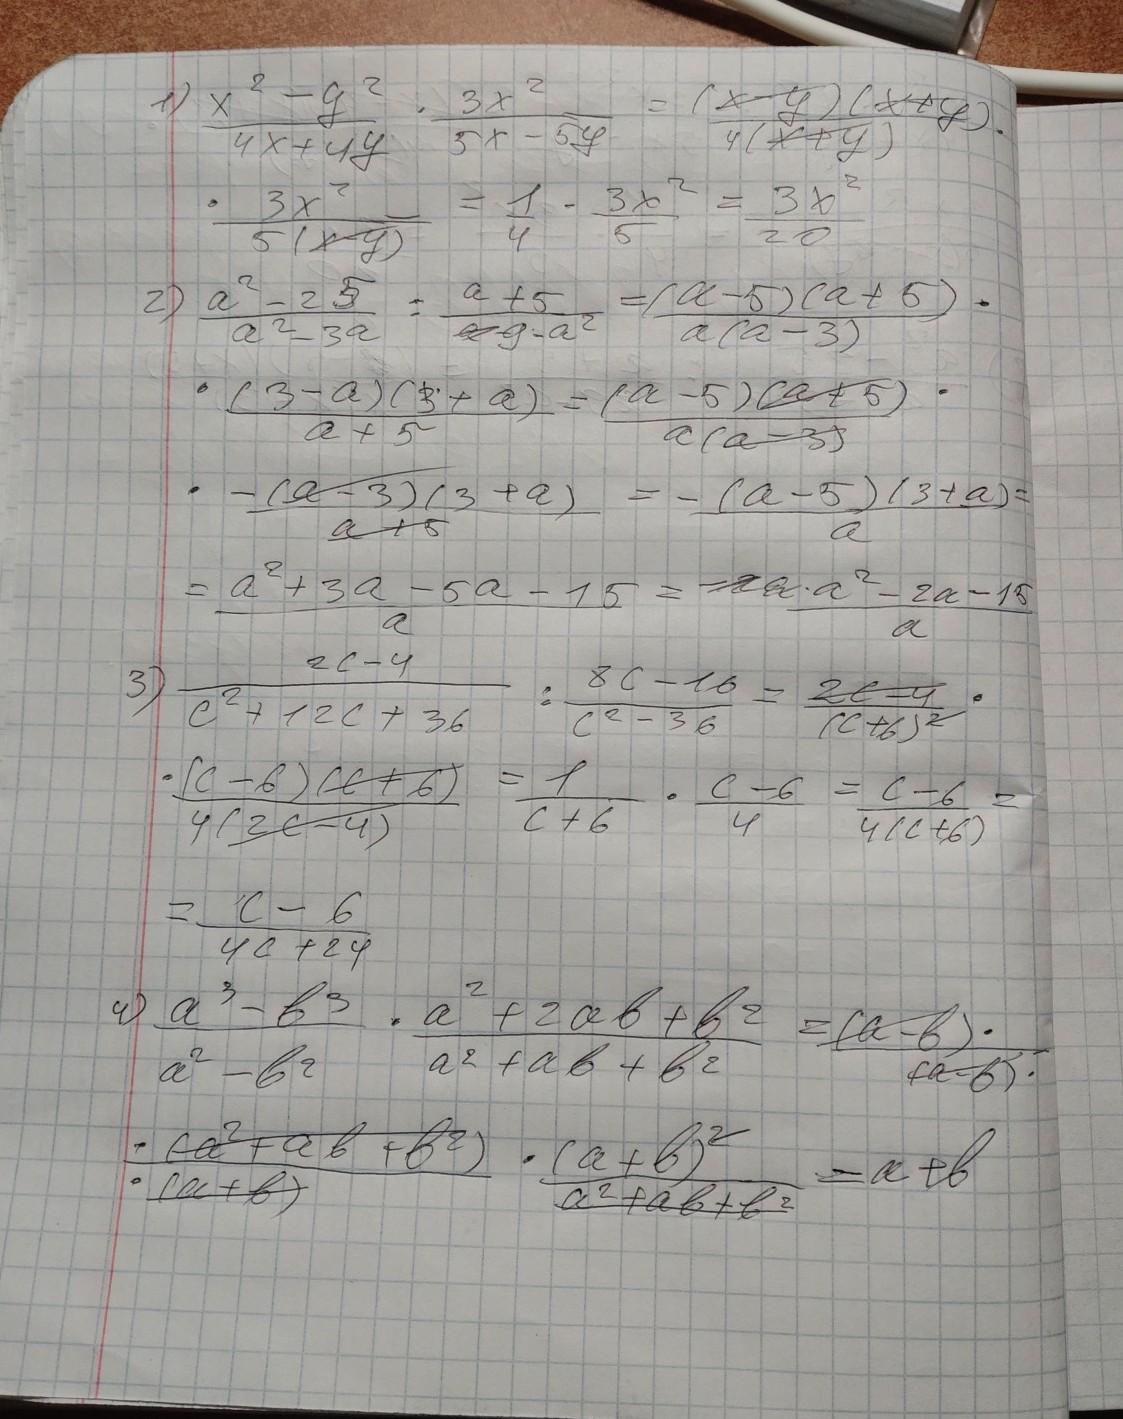 1) (x² - y²)/(4x+4y) · 3x²/(5x - 5y) = (x-y)(x+y)/4(x+y) ·
· 3x²/5(x-y) = 1/4 · 3x²/5 = 3x²/20
2) (a² - 25)/(a² - 3a) : (a+5)/(9-a²) = (a-5)(a+5)/a(a-3) ·
· (3-a)(3+a)/(a+5) = (a-5)(a+5)/a(a-3) ·
· -(a-3)(3+a)/(a+5) = -(a-5)(3+a)/a =
= (a²+3a-5a-15)/a = (a²-2a-15)/a
3) (2c-4)/(c²+12c+36) : (8c-16)/(c²-36) = (2c-4)/(c+6)² ·
· (c-6)(c+6)/4(2c-4) = 1/(c+6) · (c-6)/4 = (c-6)/4(c+6) =
= (c-6)/(4c+24)
4) (a³-b³)/(a²-b²) · (a²+2ab+b²)/(a²+ab+b²) = (a-b)·/(a-b)·
· (a²+ab+b²)/·(a+b) · (a+b)²/(a²+ab+b²) = a+b